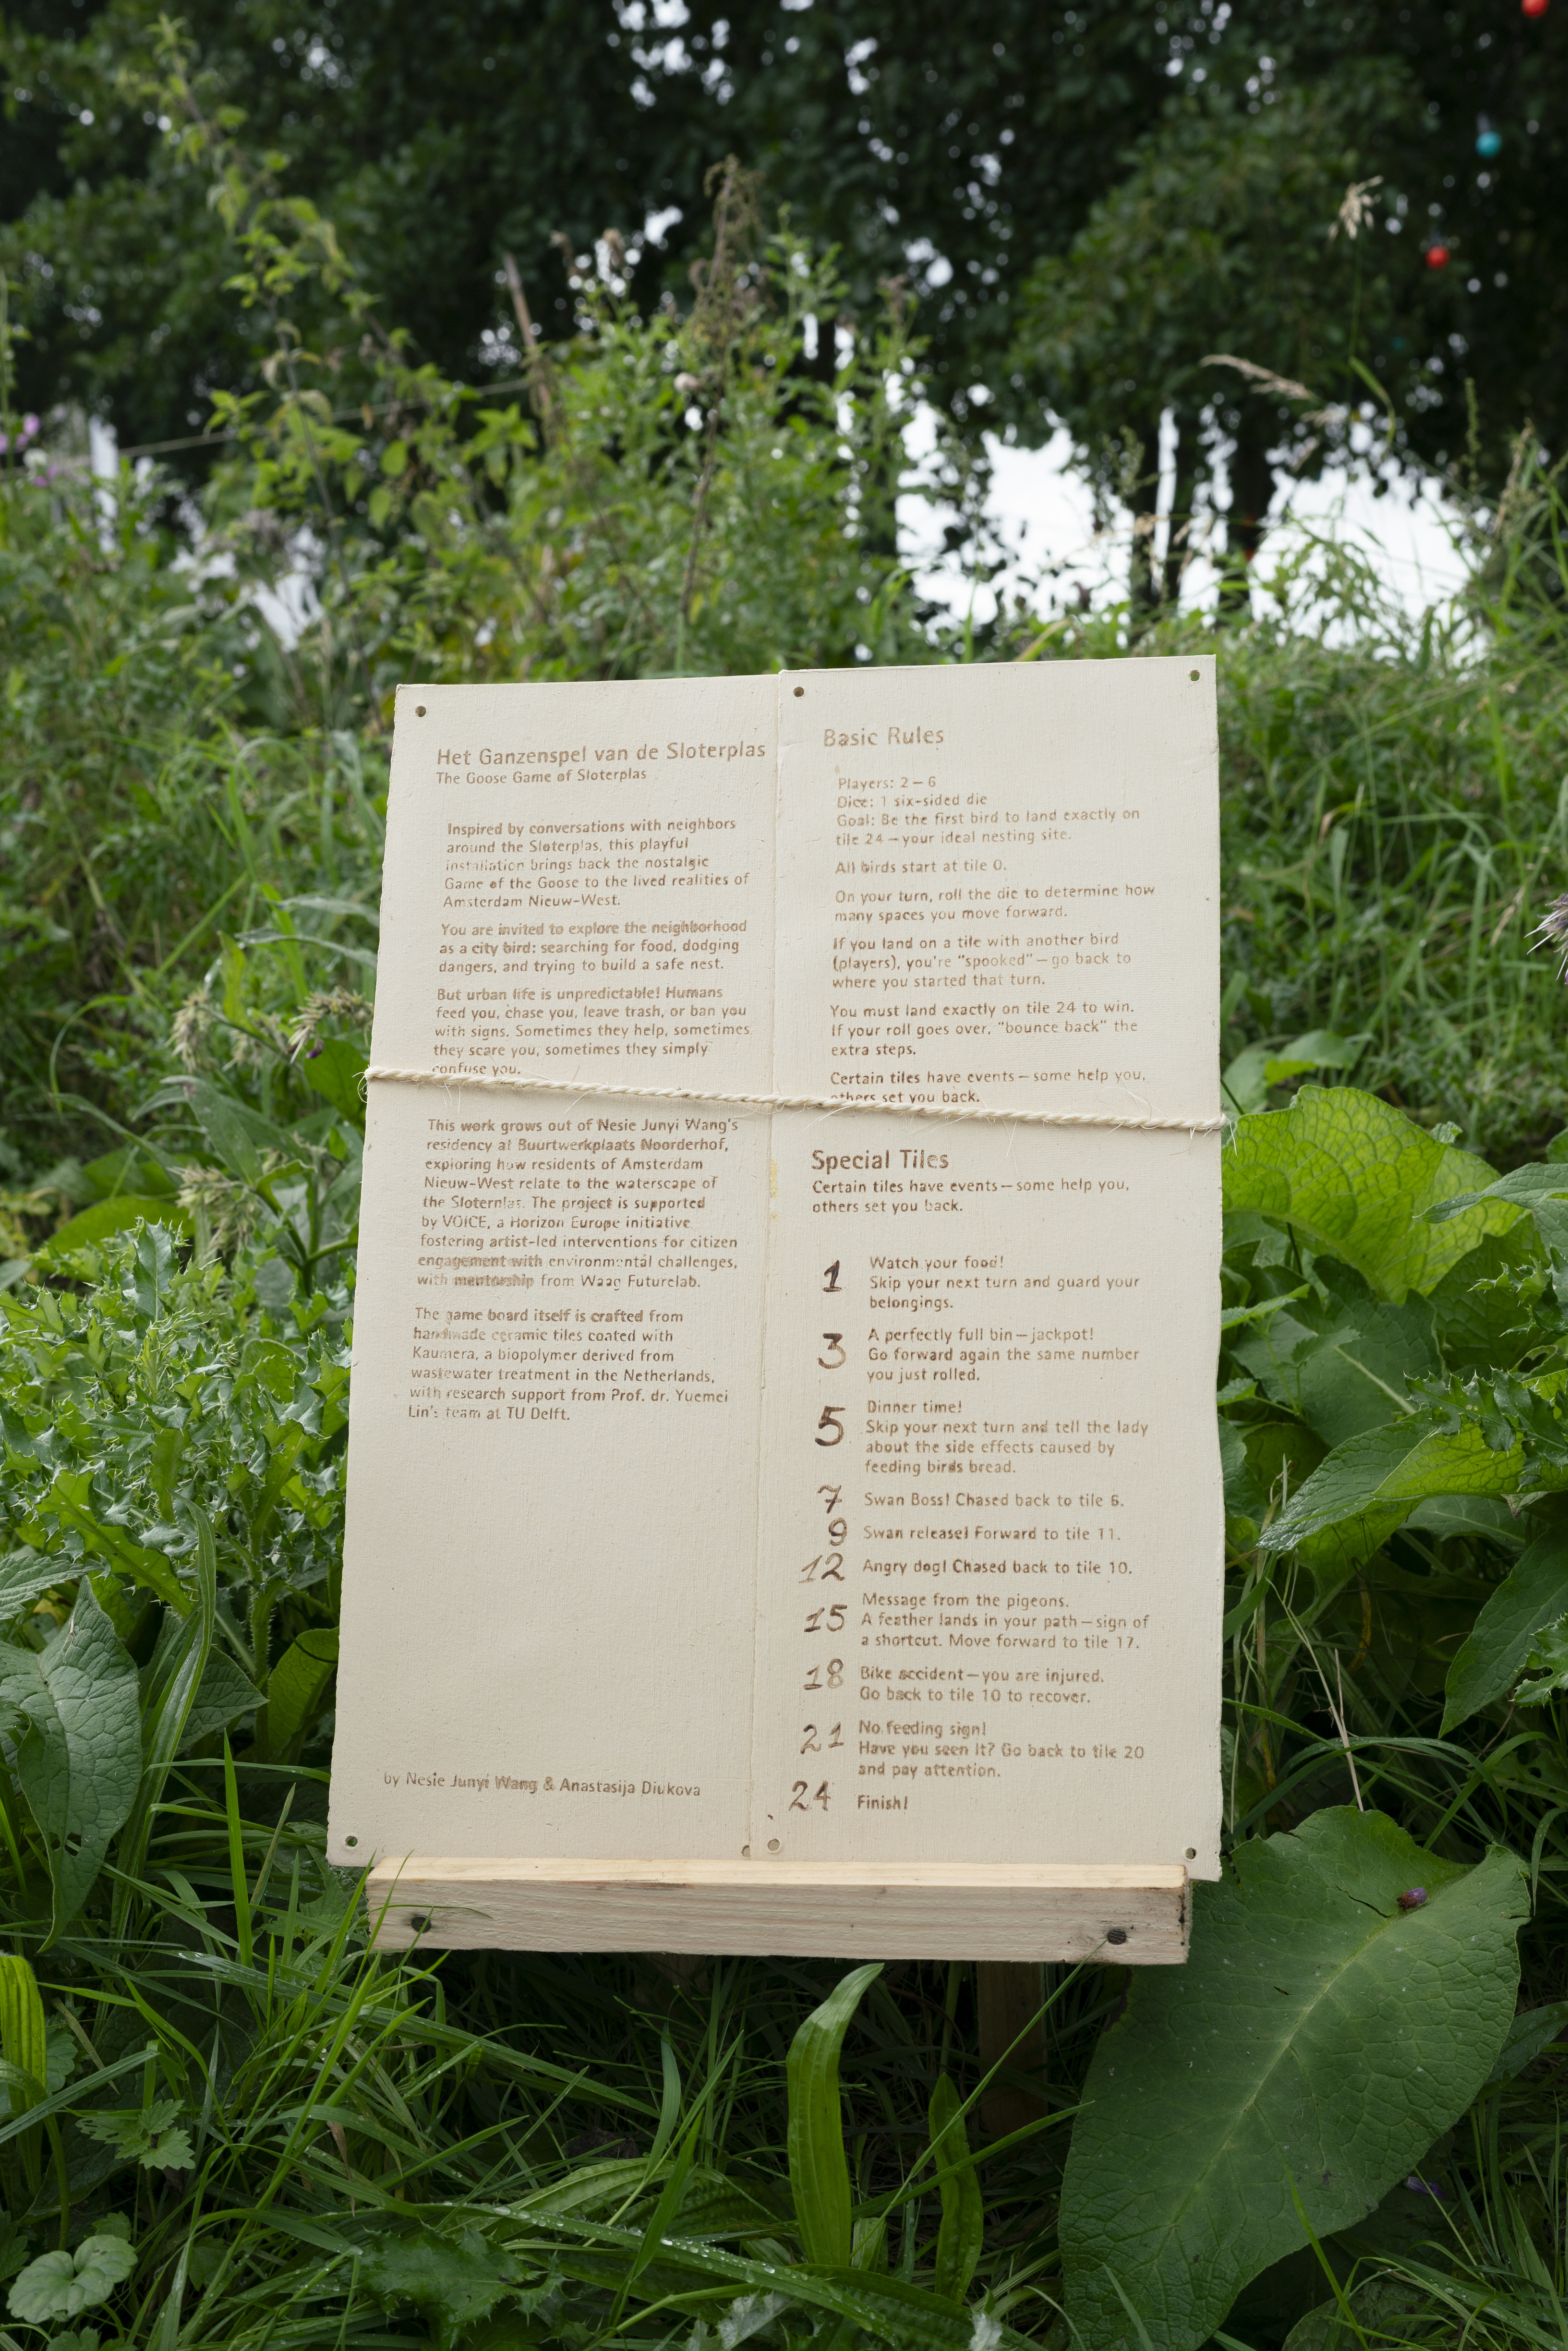 Het Ganzenspel van de Sloterplas
The Goose Game of Sloterplas
Inspired by conversations with neighbors
around the Sloterplas, this playful
installation brings back the nostalgic
Game of the Goose to the lived realities of
Amsterdam Nieuw-West.
You are invited to explore the neighborhood
as a city bird: searching for food, dodging
dangers, and trying to build a safe nest.
But urban life is unpredictable! Humans
feed you, chase you, leave trash, or ban you
with signs. Sometimes they help, sometimes
they scare you, sometimes they simply
confuse you.
This work grows out of Nesie Junyi Wang's
residency at Buurtwerkplaats Noorderhof,
exploring how residents of Amsterdam
Nieuw-West relate to the waterscape of
the Sloterplas. The project is supported
by VOICE, a Horizon Europe initiative
fostering artist-led interventions for citizen
engagement with environmental challenges,
with mentorship from Waag Futurelab.
The game board itself is crafted from
handmade ceramic tiles coated with
Kaumera, a biopolymer derived from
wastewater treatment in the Netherlands,
with research support from Prof. dr. Yuemei
Lin's team at TU Delft.
by Nesie Junyi Wang & Anastasija Diukova
Basic Rules
Players: 2 – 6
Dice: 1 six-sided die
Goal: Be the first bird to land exactly on
tile 24 – your ideal nesting site.
All birds start at tile 0.
On your turn, roll the die to determine how
many spaces you move forward.
If you land on a tile with another bird
(players), you're "spooked" – go back to
where you started that turn.
You must land exactly on tile 24 to win.
If your roll goes over, "bounce back" the
extra steps.
Certain tiles have events – some help you,
others set you back.
Special Tiles
Certain tiles have events – some help you,
others set you back.
1 Watch your food!
Skip your next turn and guard your
belongings.
3 A perfectly full bin – jackpot!
Go forward again the same number
you just rolled.
5 Dinner time!
Skip your next turn and tell the lady
about the side effects caused by
feeding birds bread.
7 Swan Boss! Chased back to tile 6.
9 Swan release! Forward to tile 11.
12 Angry dog! Chased back to tile 10.
15 Message from the pigeons.
A feather lands in your path – sign of
a shortcut. Move forward to tile 17.
18 Bike accident – you are injured.
Go back to tile 10 to recover.
21 No feeding sign!
Have you seen it? Go back to tile 20
and pay attention.
24 Finish!